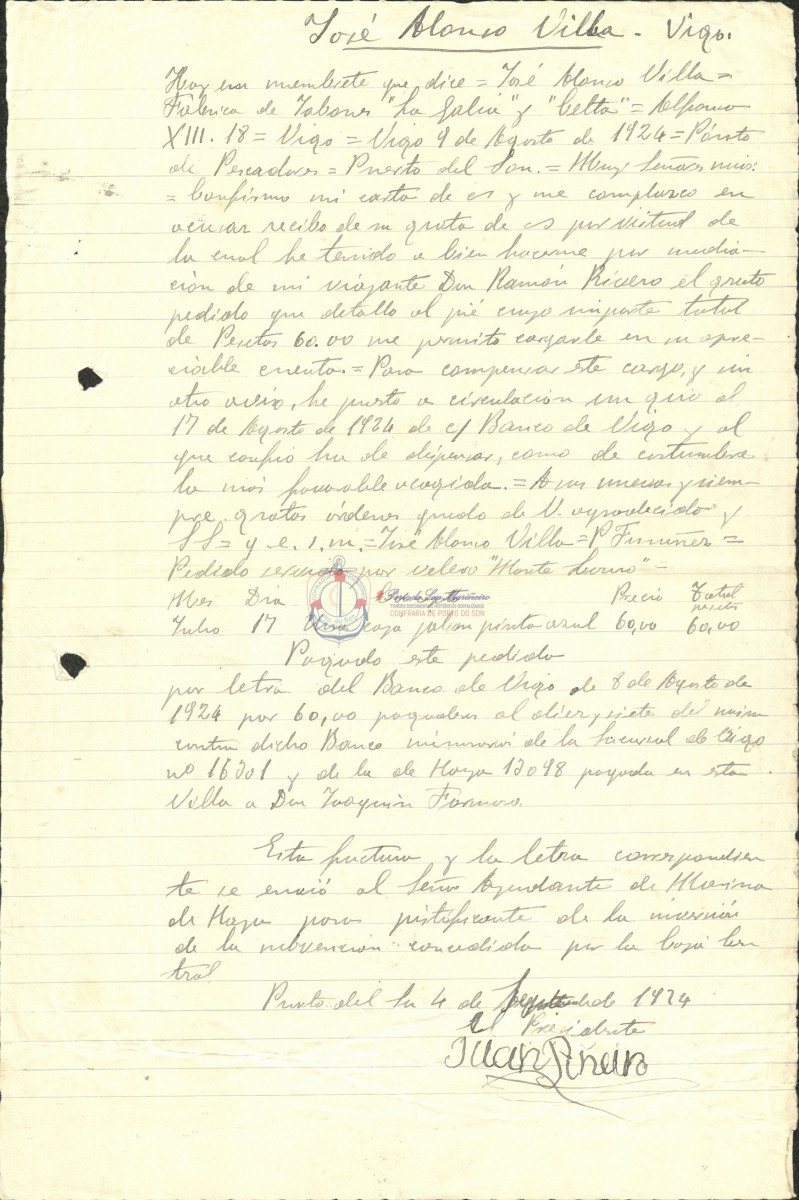 José Alonso Villa - Vigo.
Hay un membrete que dice = José Alonso Villa =
Fábrica de Jabones "La Galia" y "Celta" = Alfonso
XIII. 18 = Vigo = Vigo 9 de Agosto de 1924 = Pósito
de Pescadores = Puerto del Son. = Muy Señores mios:
= Confirmo mi carta de es y me complazco en
acusar recibo de su grata de es por virtud de
la cual he tenido a bien hacerme por media-
ción de mi viajante Don Ramón Rivero el grato
pedido que detallo al pié cuyo importe total
de Pesetas 60.00 me permito cargarle en su apre-
ciable cuenta. = Para compensar este cargo, y sin
otro aviso, he puesto a circulación un giro al
17 de Agosto de 1924 de c/ Banco de Vigo y al
que confio ha de dispensar, como de costumbre
la más favorable acogida. = A sus nuevas y siem-
pre gratas órdenes quedo de V. agradecido y
SS = q. e. s. m. = José Alonso Villa = P
Pedido servido por velero "Monte Louro" =
Mes Dia Precio Total
pesetas
Julio 17 Una caja jabon pinta azul 60,00 60,00
Pagado este pedido
por letra del Banco de Vigo de 8 de Agosto de
1924 por 60,00 pagadera al diez y siete del mismo
contra dicho Banco de la Sucursal de Vigo
nº 16301 y de la de Noya 13098 pagada en esta
Villa a Don Joaquin
Esta factura y la letra correspondien
te se envió al Señor Ayudante de Marina
de Noya para justificante de la inversión
de la subvención concedida por la Caja Cen
tral
Puerto del Son 4 de Septiembre de 1924
El Presidente
Juan Piñeiro
CONFRARIA DE PORTO DO SON